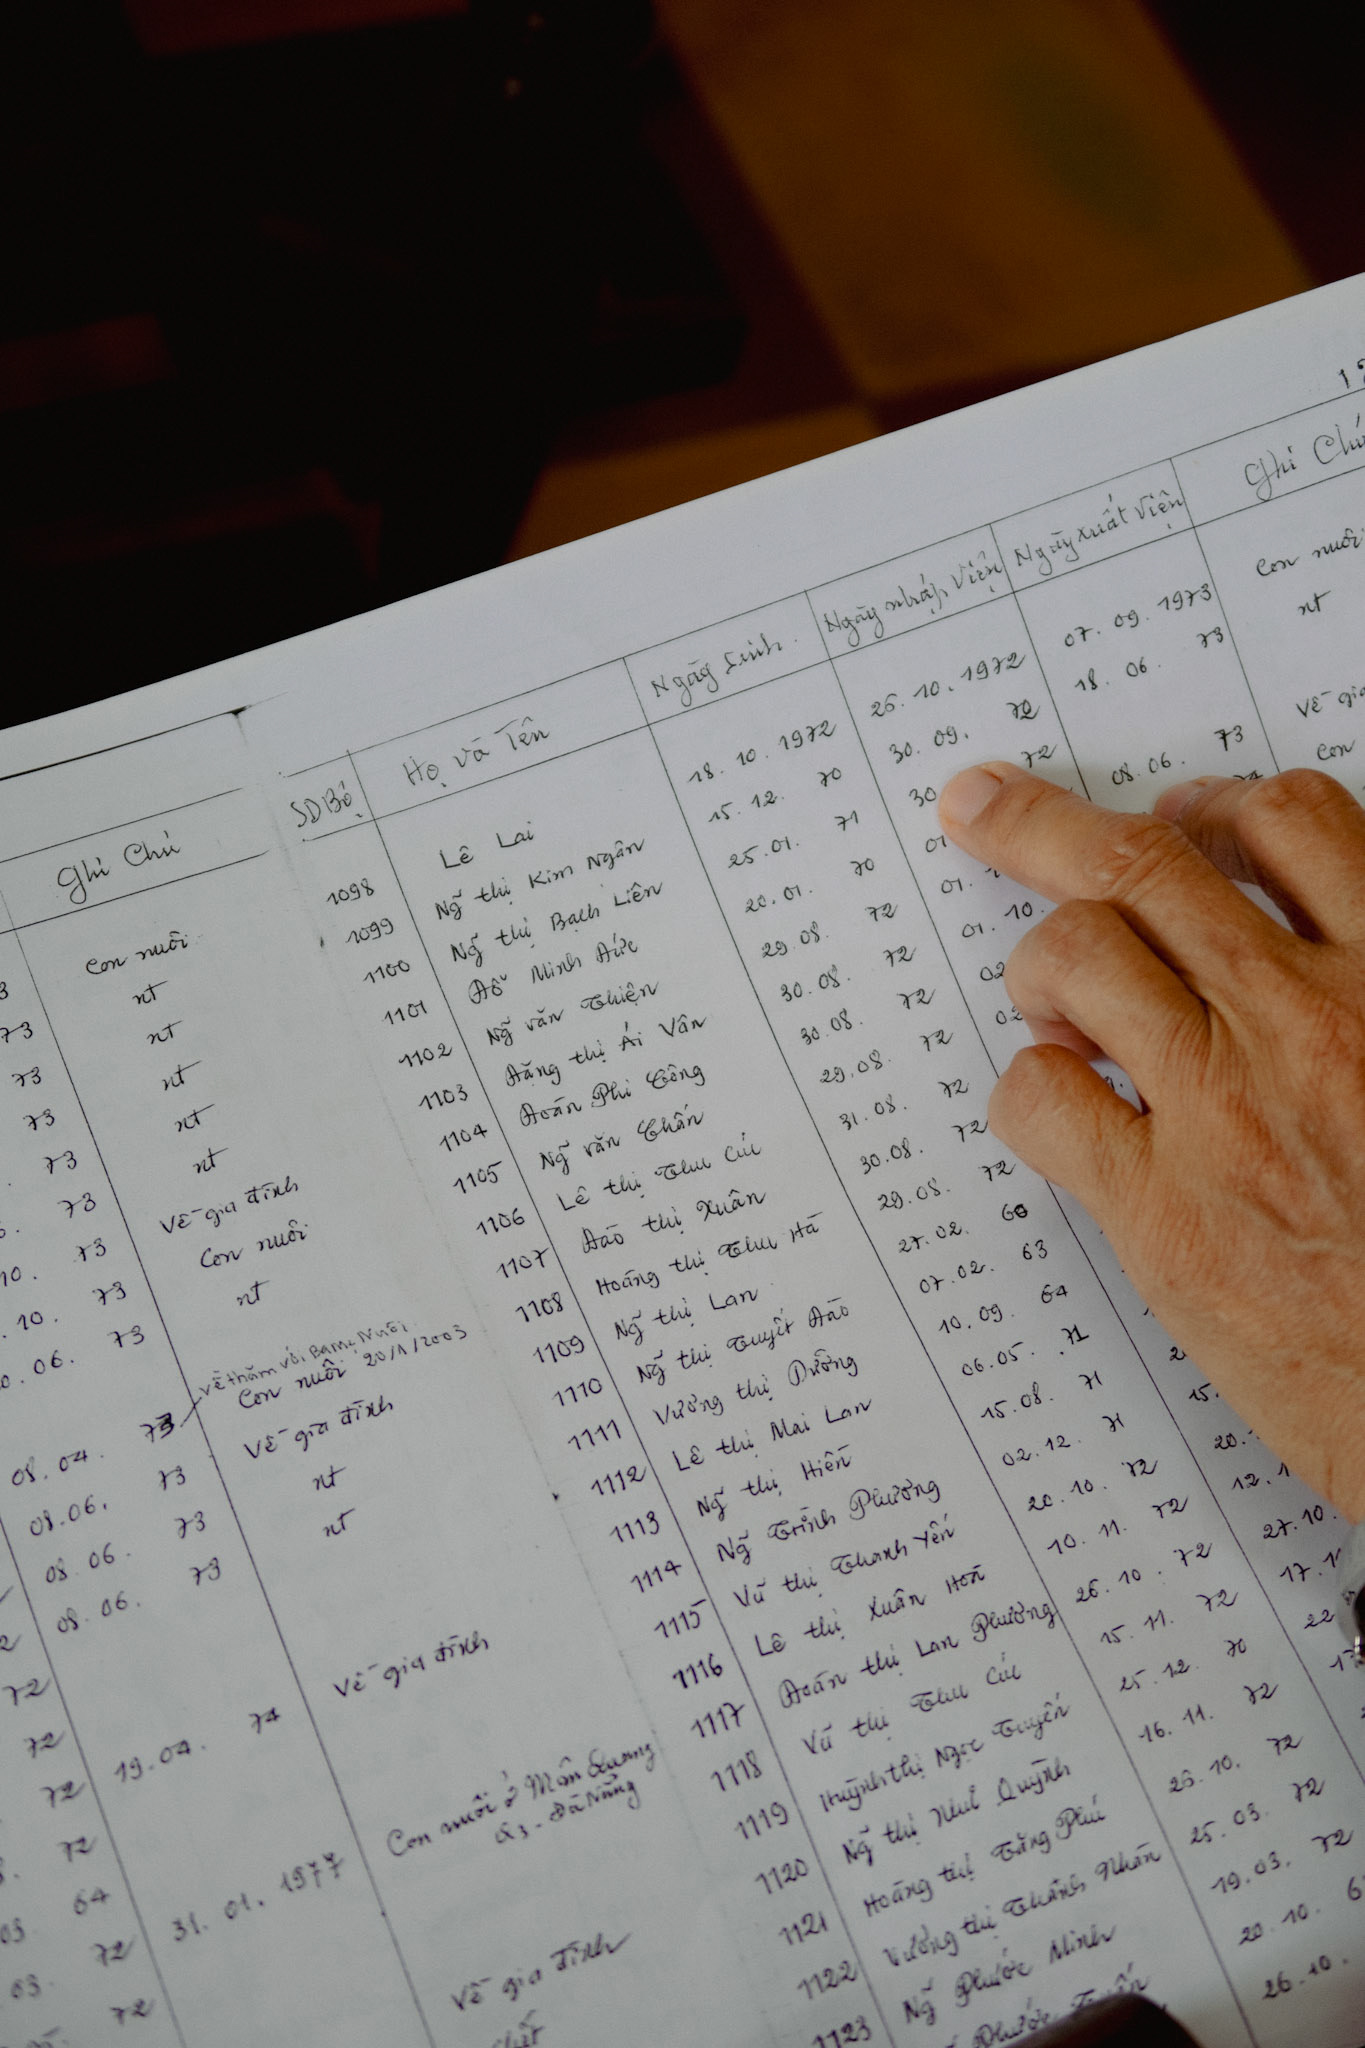 Ghi Chú
3 Con nuôi
73 nt
73 nt
73 nt
73 nt
73 nt
73 Về gia đình
10. 73 Con nuôi
10. 73 nt
06. 73
Về thăm với Ba mẹ Nuôi
08. 04. 73 Con nuôi 20/1/2003
08. 06. 73 Về gia đình
08 06. 73 nt
08. 06. 73 nt
72
72 19.04. 74 Về gia đình
72
72
64 31. 01. 1977 Con nuôi ở Mân Quang
Q3 - Đà Nẵng
03. 72
72 Về gia đình
SDBộ Họ và Tên Ngày Sinh. Ngày nhập Viện Ngày xuất Viện Ghi Chú
1098 Lê Lai 18. 10. 1972 26. 10. 1972 07. 09. 1973 Con nuôi
1099 Ng~ thị Kim Ngân 15. 12. 70 30. 09. 72 18. 06. 73 nt
1100 Ng~ thị Bạch Liên 25. 01. 71 30 72
1101 Đỗ Minh Đức 20. 01. 70 01 08. 06. 73 Về gia
1102 Ng~ văn Thiện 29. 08. 72 01. Con
1103 Đặng thị Ái Vân 30. 08. 72 01. 10.
1104 Đoàn Phi Công 30. 08. 72 02
1105 Ng~ văn Chấn 29. 08. 72 02
1106 Lê thị Thu Cúc 31. 08. 72
1107 Đào thị Xuân 30. 08. 72
1108 Hoàng thị Thu Hà 29. 08. 72
1109 Ng~ thị Lan 27. 02. 60
1110 Ng~ thị Tuyết Đào 07. 02. 63
1111 Vương thị Dưỡng 10. 09. 64
1112 Lê thị Mai Lan 06. 05. 71
1113 Ng~ thị Hiền 15. 08. 71
1114 Ng~ Trinh Phương 02. 12. 71 15.
1115 Vũ thị Thanh Yến 20. 10. 72 20.
1116 Lê thị Xuân Hoa 10. 11. 72 12. 1
1117 Đoàn thị Lan Phương 26. 10. 72 27. 10.
1118 Vũ thị Thu Cúc 15. 11. 72 17. 1
1119 Huỳnh thị Ngọc Tuyền 25. 12. 70 22
1120 Ng~ thị Như Quỳnh 16. 11. 72
1121 Hoàng thị Tăng Phú 26. 10. 72
1122 Vương thị Thành Nhân 25. 03. 72
1123 Ng~ Phước Minh 19. 03. 72
20. 10. 6
26. 10.